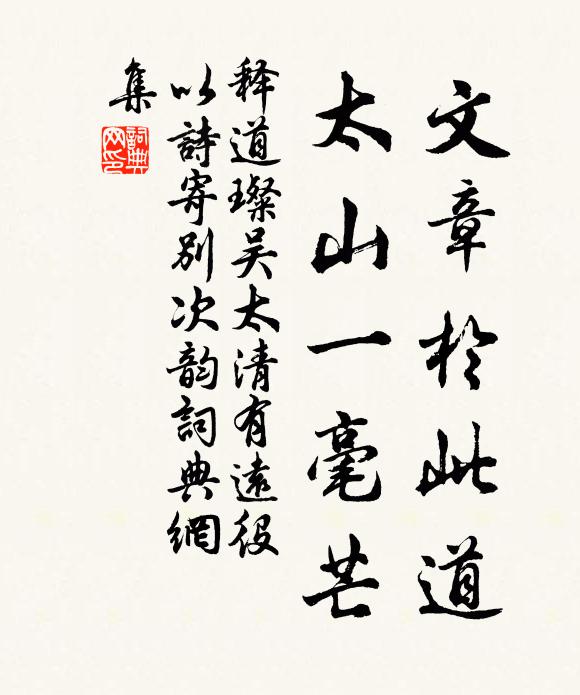 文章於此道
太山一毫芒
释道璨吴太清有遠役
以詩寄别次韵詞典網
集
詞典
网印